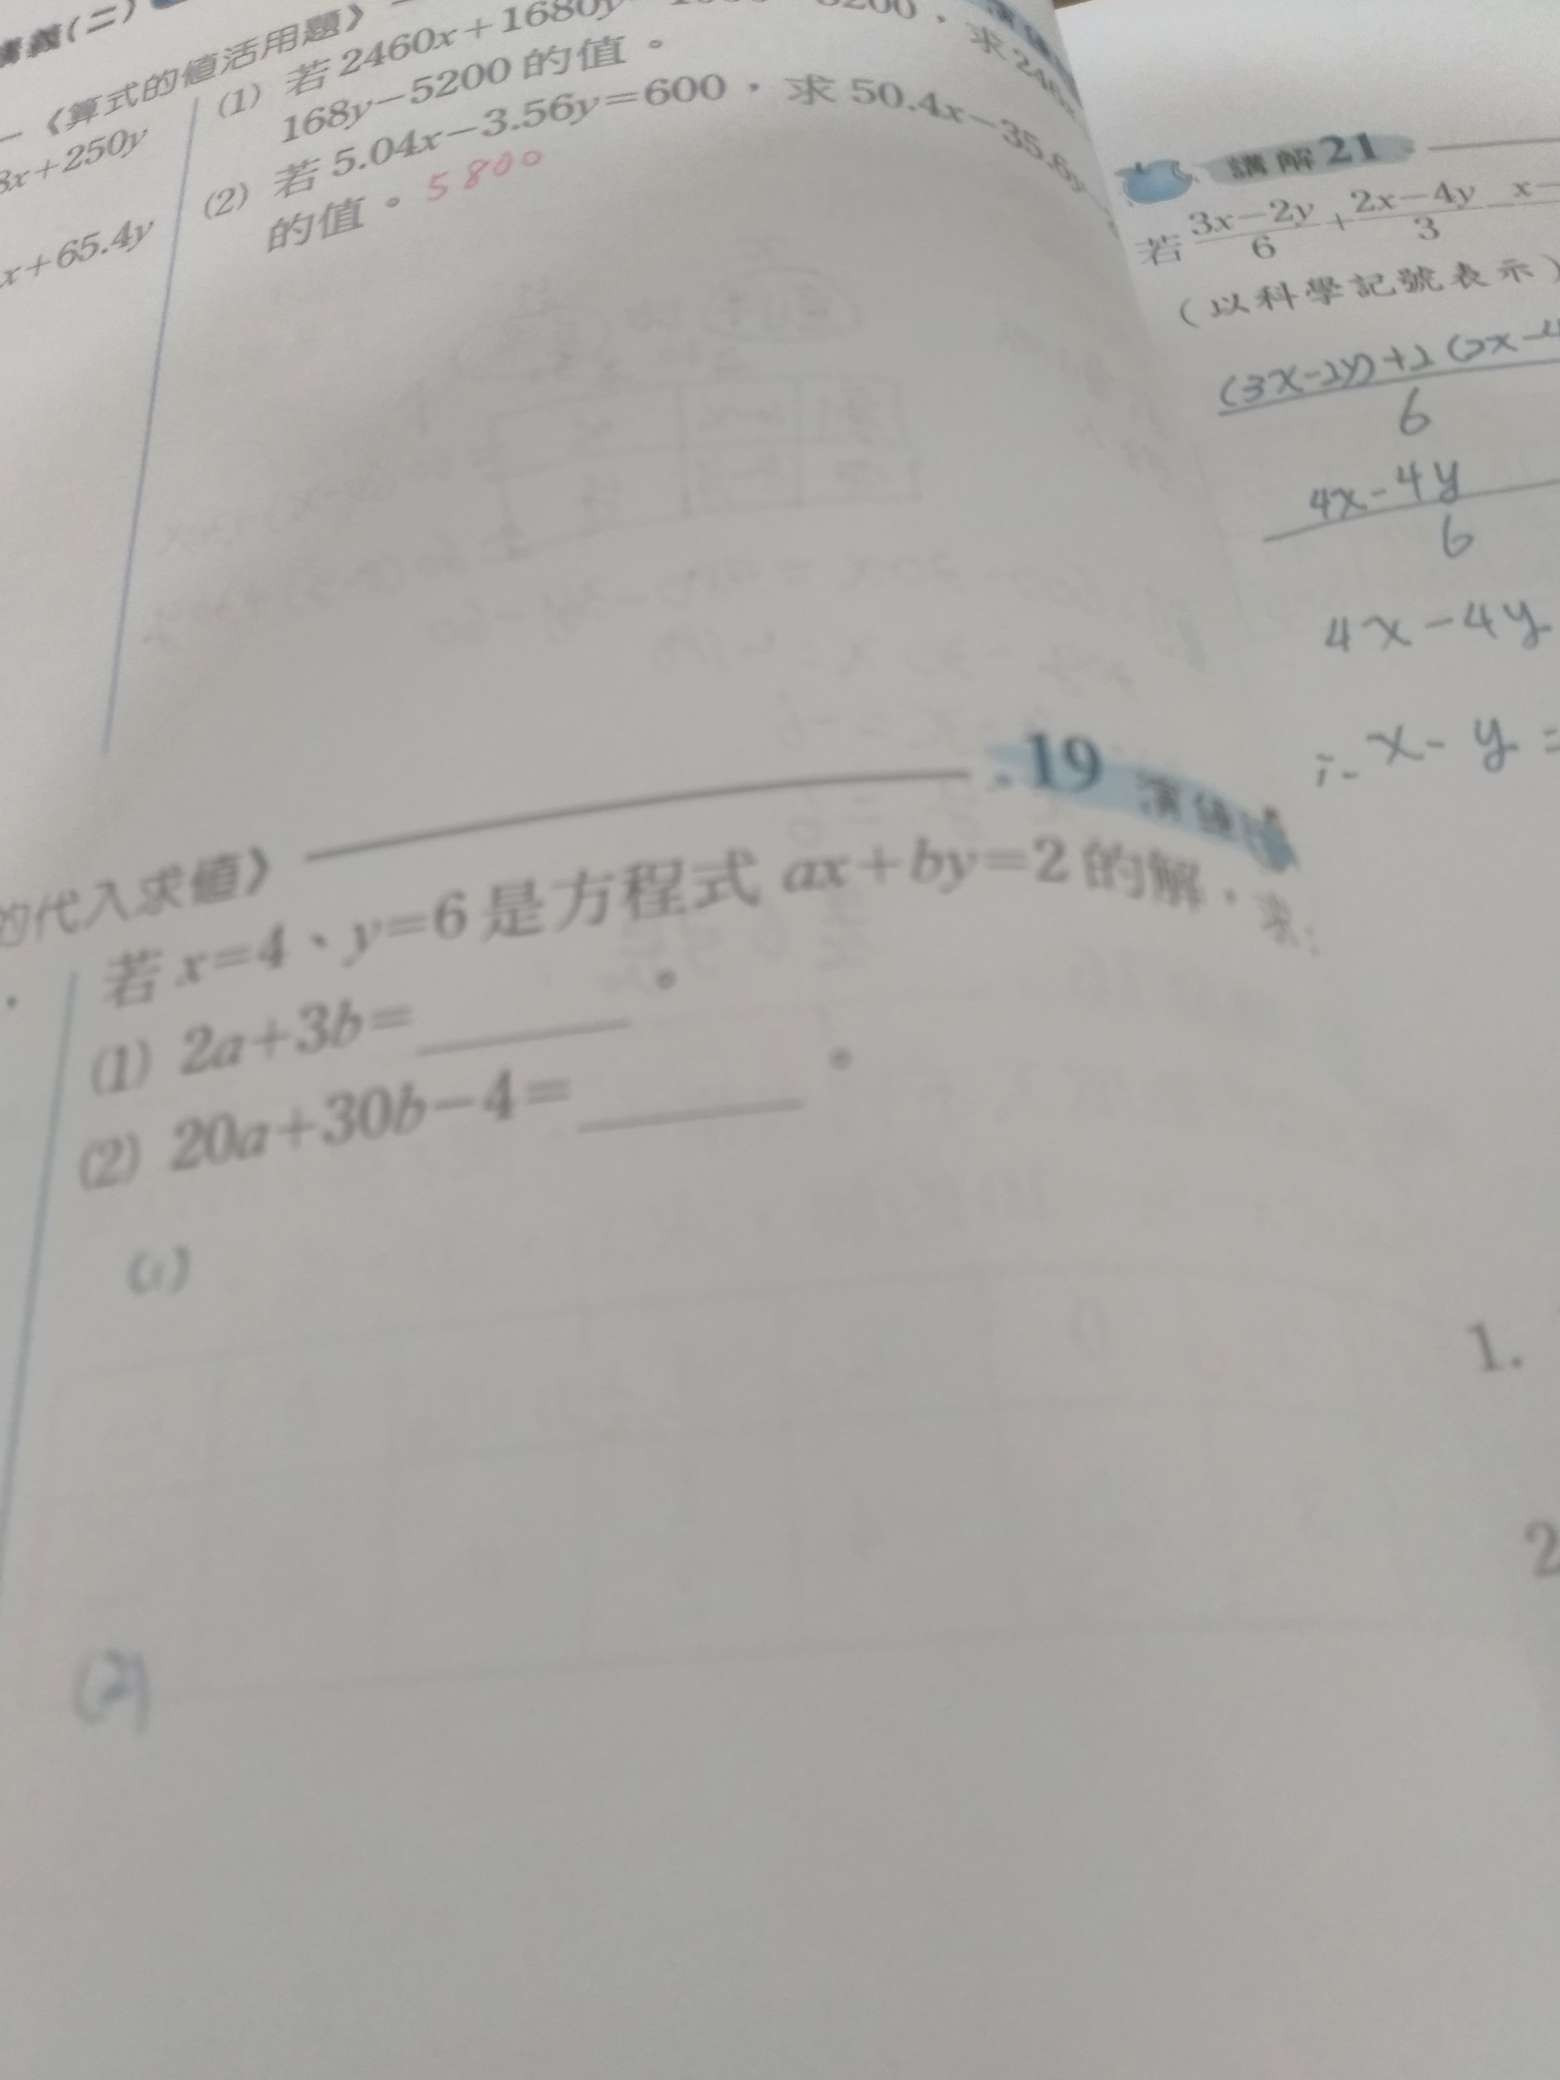 講義(二)
《算式的值活用題》
3x+250y
x+65.4y
(1) 若2460x+1680y
168y−5200的值。
(2) 若5.04x−3.56y=600,求50.4x−35.6y
的值。5800
的代入求值》
19 演練
若x=4、y=6是方程式ax+by=2的解,求:
(1) 2a+3b=______。
(2) 20a+30b−4=______。
(1)
(2)
講解21
若 3x−2y/6 + 2x−4y/3 x−
(以科學記號表示)
(3x-2y)+2(2x-4
6
4x-4y
6
4x-4y
∴ x-y=
1.
2